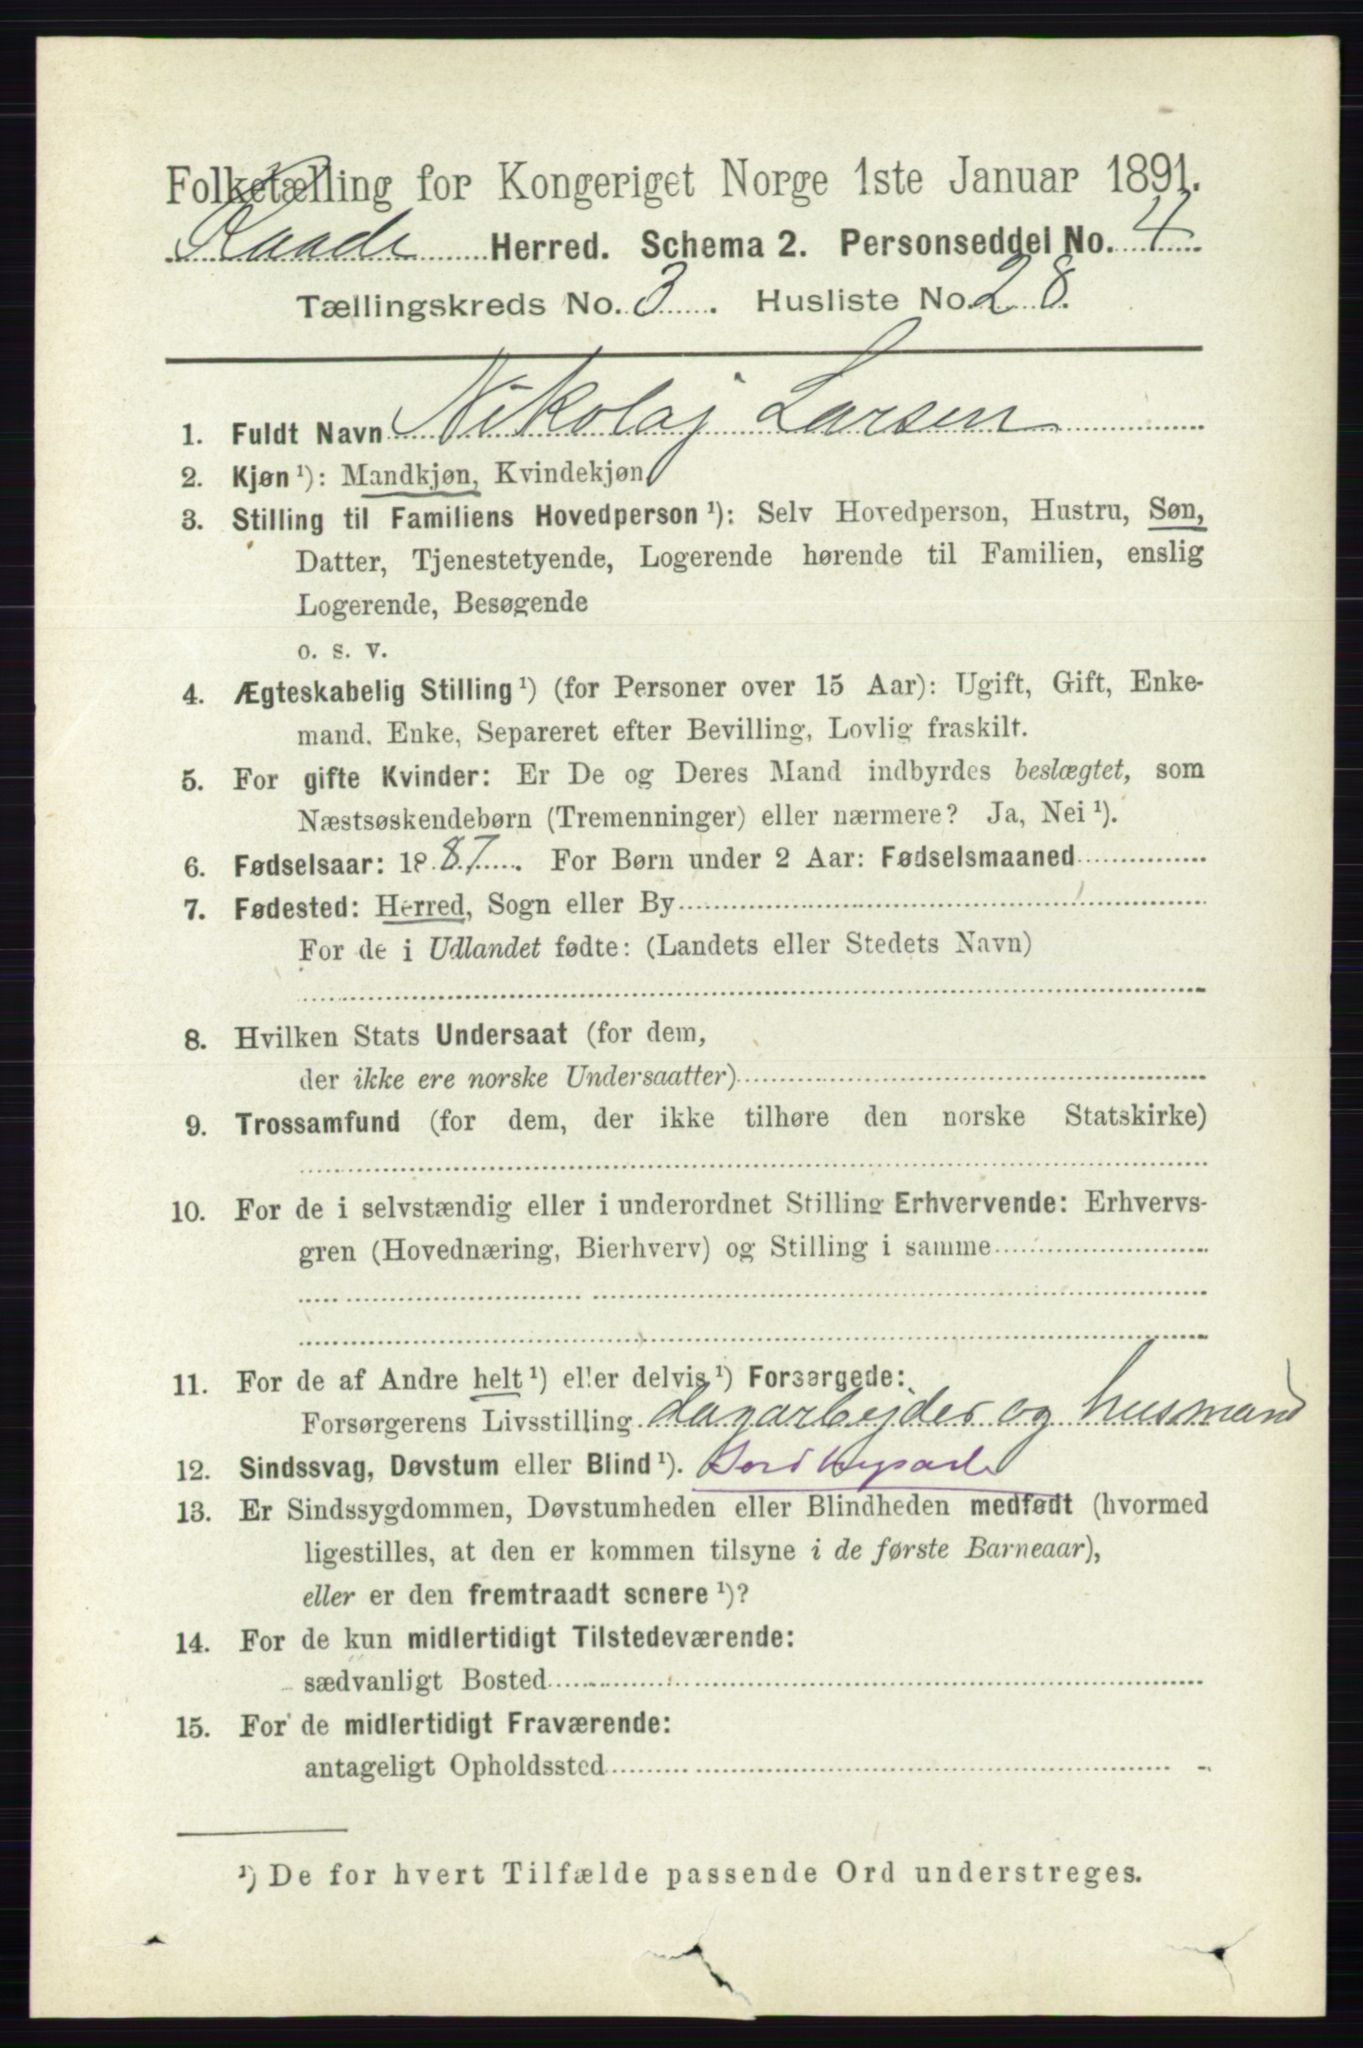 Folketælling for Kongeriget Norge 1ste Januar 1891.
Raade Herred. Schema 2. Personseddel No. 4
Tællingskreds No. 3. Husliste No. 28.
1. Fuldt Navn Nikolaj Larsen
2. Kjøn ¹): Mandkjøn, Kvindekjøn
3. Stilling til Familiens Hovedperson ¹): Selv Hovedperson, Hustru, Søn,
Datter, Tjenestetyende, Logerende hørende til Familien, enslig
Logerende, Besøgende
o. s. v.
4. Ægteskabelig Stilling ¹) (for Personer over 15 Aar): Ugift, Gift, Enke-
mand, Enke, Separeret efter Bevilling, Lovlig fraskilt.
5. For gifte Kvinder: Er De og Deres Mand indbyrdes beslægtet, som
Næstsøskendebørn (Tremenninger) eller nærmere? Ja, Nei ¹).
6. Fødselsaar: 1887. For Børn under 2 Aar: Fødselsmaaned
7. Fødested: Herred, Sogn eller By
For de i Udlandet fødte: (Landets eller Stedets Navn)
8. Hvilken Stats Undersaat (for dem,
der ikke ere norske Undersaatter)
9. Trossamfund (for dem, der ikke tilhøre den norske Statskirke)
10. For de i selvstændig eller i underordnet Stilling Erhvervende: Erhvervs-
gren (Hovednæring, Bierhverv) og Stilling i samme
11. For de af Andre helt ¹) eller delvis ¹) Forsørgede:
Forsørgerens Livsstilling dagarbejder og husmand
12. Sindssvag, Døvstum eller Blind ¹).
13. Er Sindssygdommen, Døvstumheden eller Blindheden medfødt (hvormed
ligestilles, at den er kommen tilsyne i de første Barneaar),
eller er den fremtraadt senere ¹)?
14. For de kun midlertidigt Tilstedeværende:
sædvanligt Bosted
15. For de midlertidigt Fraværende:
antageligt Opholdssted
¹) De for hvert Tilfælde passende Ord understreges.